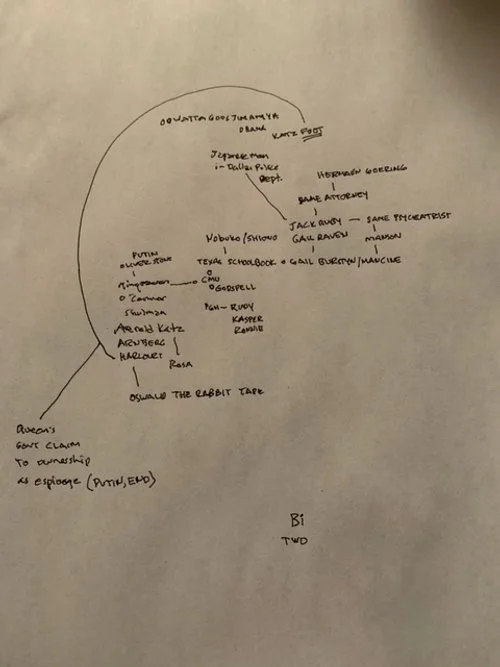 KATZ FOOJ
Japanese man
in Dallas Police
Dept.
HERMANN GOERING
SAME ATTORNEY
JACK RUBY — SAME PSYCHIATRIST
GAIL RAVEN
MANSON
NOBUKO/SHIONO
TEXAS SCHOOLBOOK o GAIL BURSTYN/MANCINE
PUTIN
OLIVER STONE
CMU
o GODSPELL
Shulman
PGH — RUDY
KASPER
RONNIE
Arnold Katz
ARNBERG
HARCOURT
ROSA
OSWALD THE RABBIT TAPE
Queen's
GOVT CLAIM
TO OWNERSHIP
as espionage (PUTIN, END)
Bi
TWD